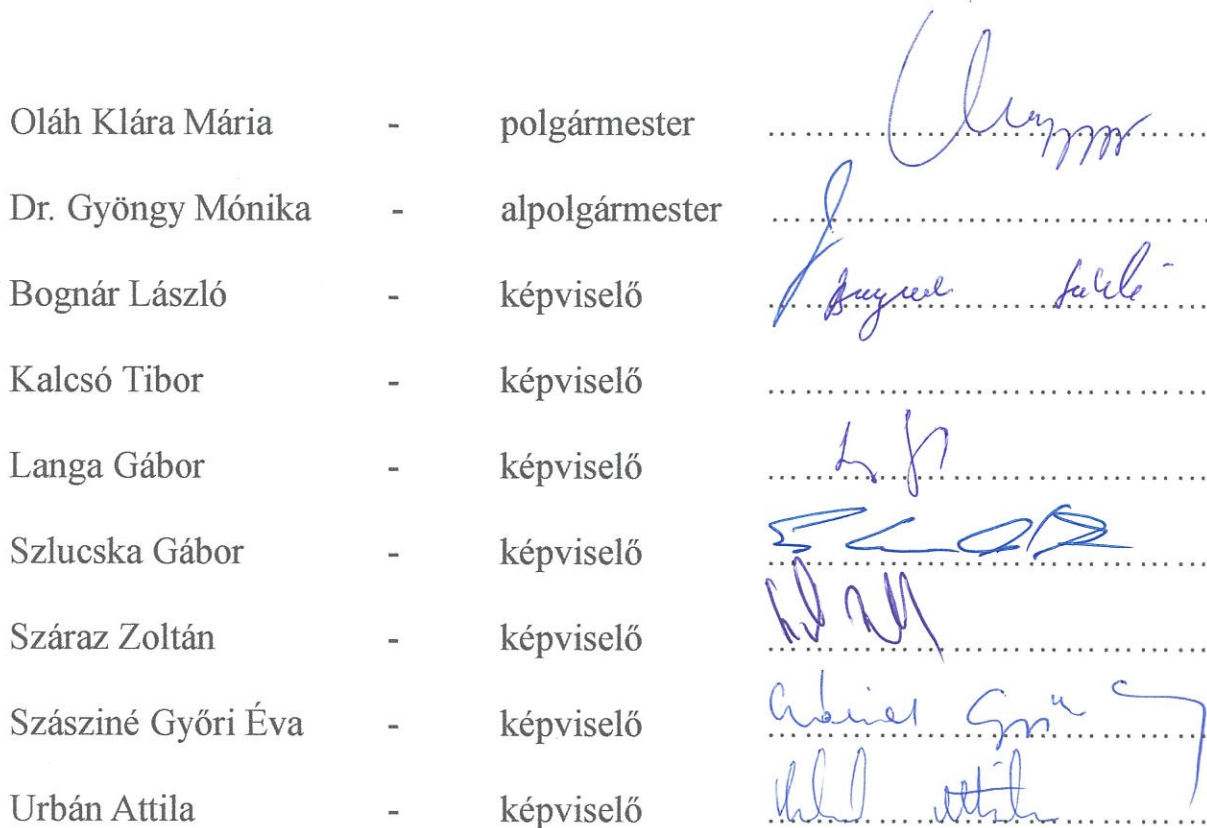 Oláh Klára Mária - polgármester ................
Dr. Gyöngy Mónika - alpolgármester ................
Bognár László - képviselő ................
Kalcsó Tibor - képviselő ................
Langa Gábor - képviselő ................
Szlucska Gábor - képviselő ................
Száraz Zoltán - képviselő ................
Szásziné Győri Éva - képviselő ................
Urbán Attila - képviselő ................